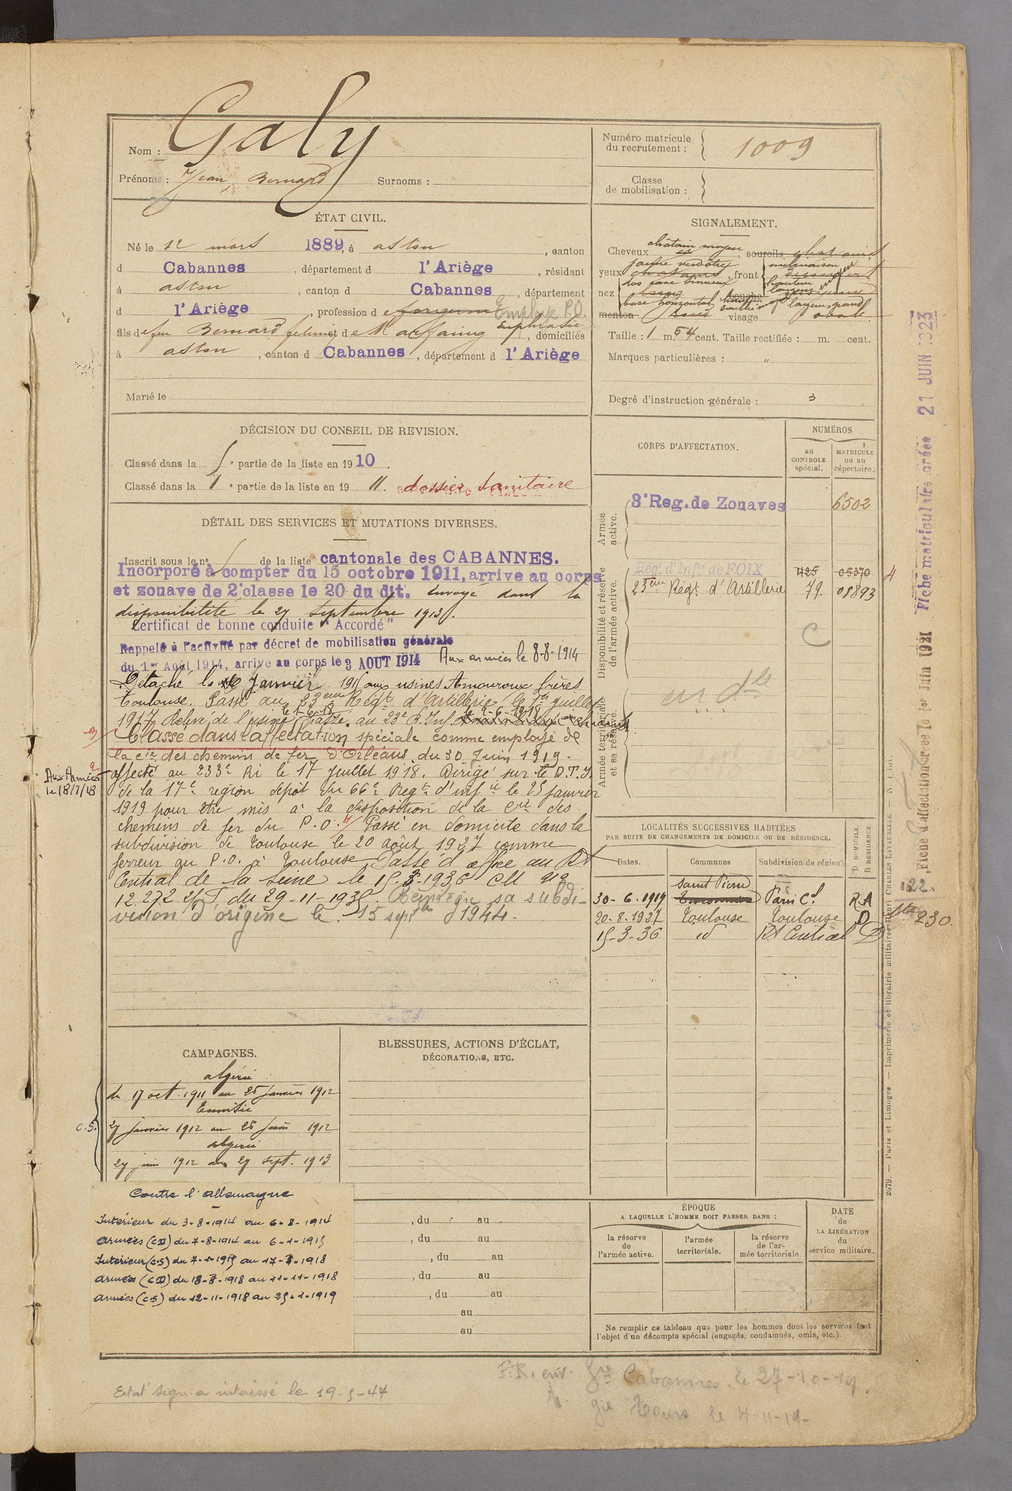 Nom : Galy
Prénoms : Jean, Bernard Surnoms :
Numéro matricule
du recrutement : 1009
Classe
de mobilisation :
ÉTAT CIVIL.
Né le 12 mars 1889, à aston, canton
d Cabannes, département d l'Ariège, résidant
à aston, canton d Cabannes, département
d l'Ariège, profession d Employé P.O.
fils de feu Bernard et de Marfaing Euphrasie, domiciliés
à aston, canton d Cabannes, département d l'Ariège
Marié le
SIGNALEMENT.
Cheveux chatain moyen, sourcils chatains
yeux, front
nez
menton visage ovale
Taille : 1 m. 64 cent. Taille rectifiée : m. cent.
Marques particulières : "
Degré d'instruction générale : 3
DÉCISION DU CONSEIL DE REVISION.
Classé dans la partie de la liste en 1910.
Classé dans la 1e partie de la liste en 1911. dossier sanitaire
DÉTAIL DES SERVICES ET MUTATIONS DIVERSES.
Inscrit sous le n° de la liste cantonale des CABANNES.
Incorporé à compter du 15 octobre 1911, arrive au corps
et zouave de 2e classe le 20 du dit. Envoyé dans la
disponibilité le 27 septembre 1913.
Certificat de bonne conduite "Accordé"
Rappelé à l'activité par décret de mobilisation générale
du 1er Août 1914, arrive au corps le 3 AOUT 1914 Aux armées le 8-8-1914
Détaché le Janvier 1915 aux usines Amouroux frères
Toulouse. Passé au 23eme Régt d'Artillerie le 1er juillet
1917
Classé dans affectation spéciale comme employé de
la Cie des chemins de fer d'Orléans, du 30 Juin 1919.
Aux Armées
le 18/7/18
affecté au 233e RI le 17 juillet 1918. Dirigé sur le D.T.I.
de la 17e région dépôt du 66e Régt d'infie le 25 janvier
1919 pour être mis à la disposition de la Cie des
chemins de fer du P.O. Passé en domicile dans la
subdivision de Toulouse le 20 août 1927 comme
ferreur au P.O. à Toulouse. Passé d'office au Rt
Central de la Seine le 15-3-1936 CM 912
12.272 du 29-11-1935. Réintègre sa subdi-
vision d'origine le 15 septe 1944.
CORPS D'AFFECTATION.
NUMÉROS
AU CONTROLE spécial.
MATRICULE ou au répertoire.
Armée active.
3e Reg. de Zouaves 6502
Disponibilité et réserve de l'armée active.
Régt d'Infie de FOIX 425 05370
23eme Régt d'Artillerie 79 01893
C
Armée territoriale et sa réserve.
LOCALITÉS SUCCESSIVES HABITÉES
PAR SUITE DE CHANGEMENTS DE DOMICILE OU DE RÉSIDENCE.
Dates. Communes Subdivision de région. D. DOMICILE. R. RÉSIDENCE.
30-6-1919 Saint Pierre Paris Cl R.A
20-8-1927 Toulouse Toulouse D
15-3-36 id Rt Central D
CAMPAGNES.
algérie
du 17 oct. 1911 au 25 janvier 1912
Tunisie
27 janvier 1912 au 26 juin 1912
C.S.
algérie
27 juin 1912 au 27 sept. 1913
BLESSURES, ACTIONS D'ÉCLAT,
DÉCORATIONS, ETC.
Contre l'allemagne
Intérieur du 3-8-1914 au 6-8-1914
Armées (CD) du 7-8-1914 au 6-1-1915
Intérieur (CS) du 7-1-1915 au 17-7-1918
Armées (CD) du 18-7-1918 au 11-11-1918
Armées (CS) du 12-11-1918 au 25-1-1919
, du au
, du au
, du au
, du au
, du au
au
au
ÉPOQUE
A LAQUELLE L'HOMME DOIT PASSER DANS :
la réserve de l'armée active.
l'armée territoriale.
la réserve de l'armée territoriale.
DATE
de
LA LIBÉRATION
du
service militaire.
Ne remplir ce tableau que pour les hommes dont les services font
l'objet d'un décompte spécial (engagés, condamnés, omis, etc.).
Fiche matriculaire créée 21 JUIN 1923
Fiche d'affectation créée le 1er Juin 1921
122.
230.
2079. — Paris et Limoges. — Imprimerie et librairie militaires Henri CHARLES-LAVAUZELLE.
Etat sign. a intéressé le 19-5-47
P.R. env. gie Cabannes le 27-10-19.
gie Tours le 4-11-19.